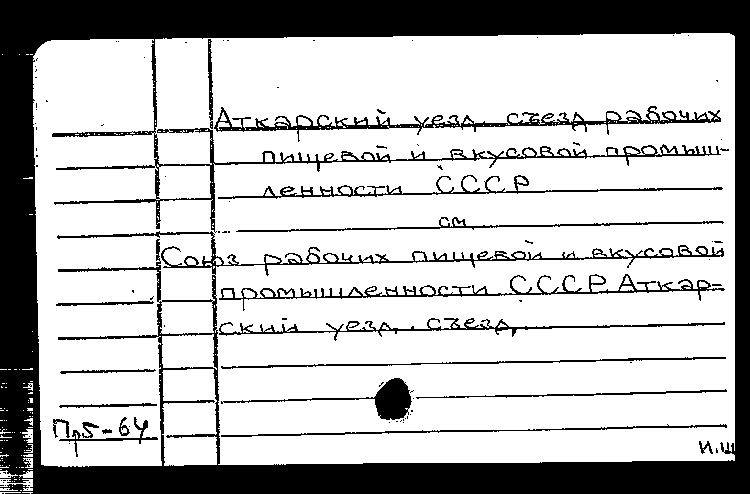 Аткарский уезд. съезд рабочих
пищевой и вкусовой промыш-
ленности СССР
см.
Союз рабочих пищевой и вкусовой
промышленности СССР. Аткар-
ский уезд. съезд.
Пр5-64
И.Ш